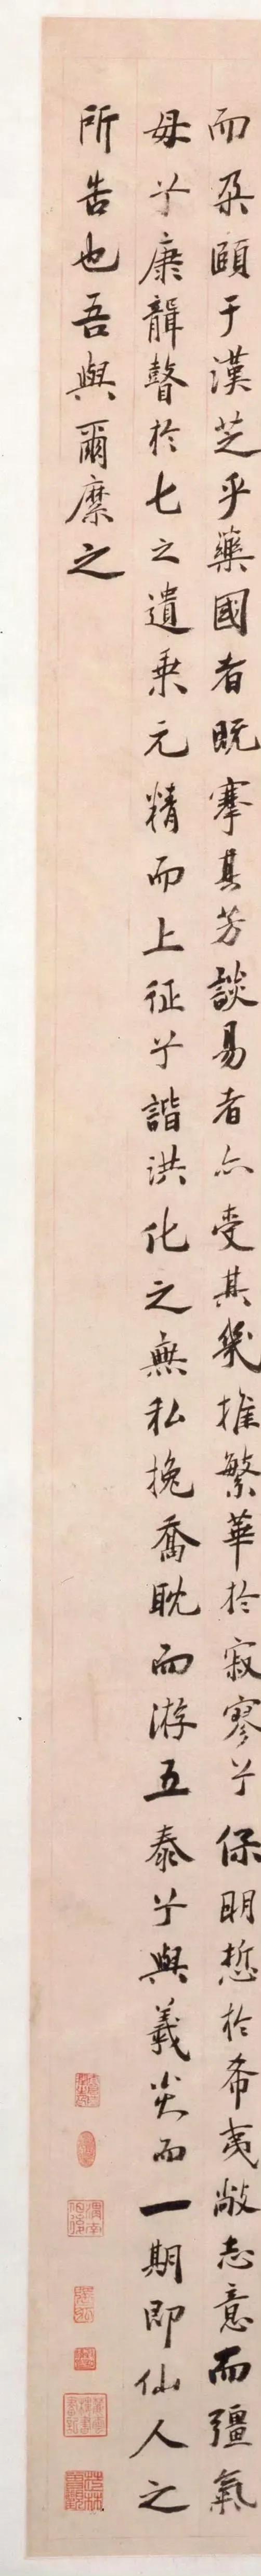 而朶頤于漢芝乎藥國者既搴其芳談易者亦受其幾推繁華於寂寥兮保明悊於希夷敞志意而彊氣
毋兮康聾瞽於七之遺乗元精而上征兮諧洪化之無私挽喬耽而游五泰兮與羲炎而一期即仙人之
所告也吾與爾麋之